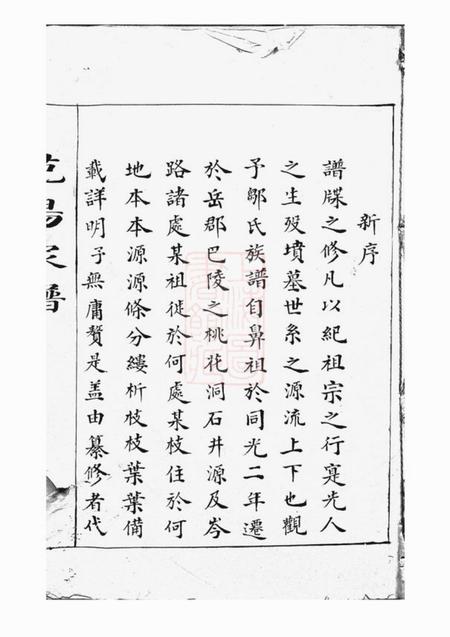 新序
譜牒之修凡以紀祖宗之行寔光人
之生歿墳墓世系之源流上下也觀
予鄒氏族譜自鼻祖於同光二年遷
於岳郡巴陵之桃花洞石井源及岑
路諸處某祖徙於何處某枝住於何
地本本源源條分縷析枝枝葉葉備
載詳明予無庸贅是盖由纂修者代